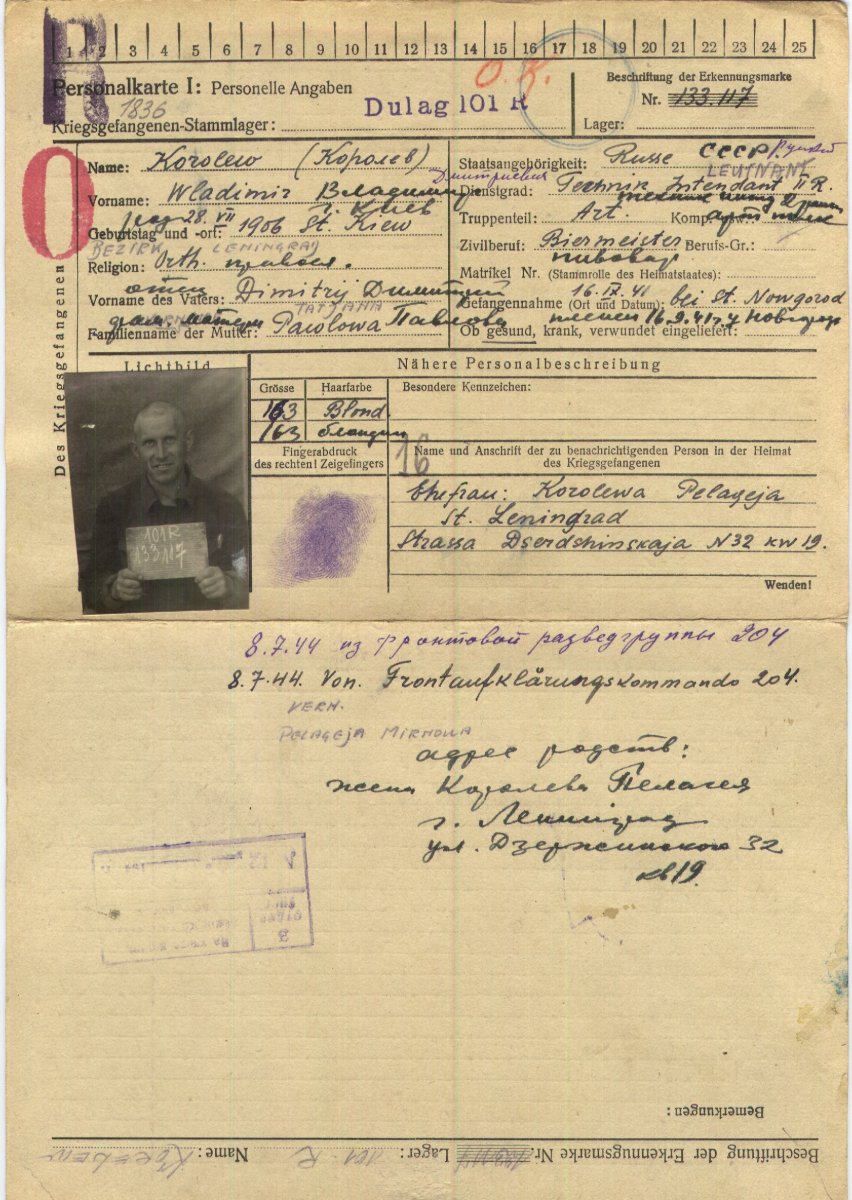 1 2 3 4 5 6 7 8 9 10 11 12 13 14 15 16 17 18 19 20 21 22 23 24 25
R
Personalkarte I: Personelle Angaben
1836
Kriegsgefangenen-Stammlager:
Dulag 101 R
Beschriftung der Erkennungsmarke
Nr. 133.117
Lager:
Des Kriegsgefangenen
Name: Korolew (Королев)
Дмитриевич
Vorname: Wladimir Владимир
28. VII г. Киев
Geburtstag und -ort: 1906 St. Kiew
BEZIRK LENINGRAD
Religion: Orth. правосл.
отец
Vorname des Vaters: Dimitrij Димитрий
TATJANA
матери
Familienname der Mutter: Pawlowa Павлова
Staatsangehörigkeit: Russe СССР
LEUTNANT
Dienstgrad: Technik Intendant II R.
техник инт 2 ранга
Truppenteil: Art. Komp. арт полк
Zivilberuf: Biermeister Berufs-Gr.:
пивовар
Matrikel Nr. (Stammrolle des Heimatstaates):
16. IX. 41
Gefangennahme (Ort und Datum): bei St. Nowgorod
пленен 16.9.41 г. у Новгорода
Ob gesund, krank, verwundet eingeliefert:
Lichtbild
Nähere Personalbeschreibung
Grösse Haarfarbe Besondere Kennzeichen:
163 Blond.
163 блондин
Fingerabdruck
des rechten! Zeigefingers
16
Name und Anschrift der zu benachrichtigenden Person in der Heimat
des Kriegsgefangenen
Ehefrau: Korolewa Pelageja
St. Leningrad
Strassa Dserdshinskaja N32 kw 19.
Wenden!
101R
133117
8.7.44 из фронтовой разведгруппы 204
8.7.44. Von. Frontaufklärungskommando 204.
VERH.
PELAGEJA MIRNOWA
адрес родств:
жена Королева Пелагея
г. Ленинград
ул. Дзержинского 32
кв 19.
Bemerkungen:
Beschriftung der Erkennungsmarke Nr. 133117 Lager: 101 R Name: KOROLEW